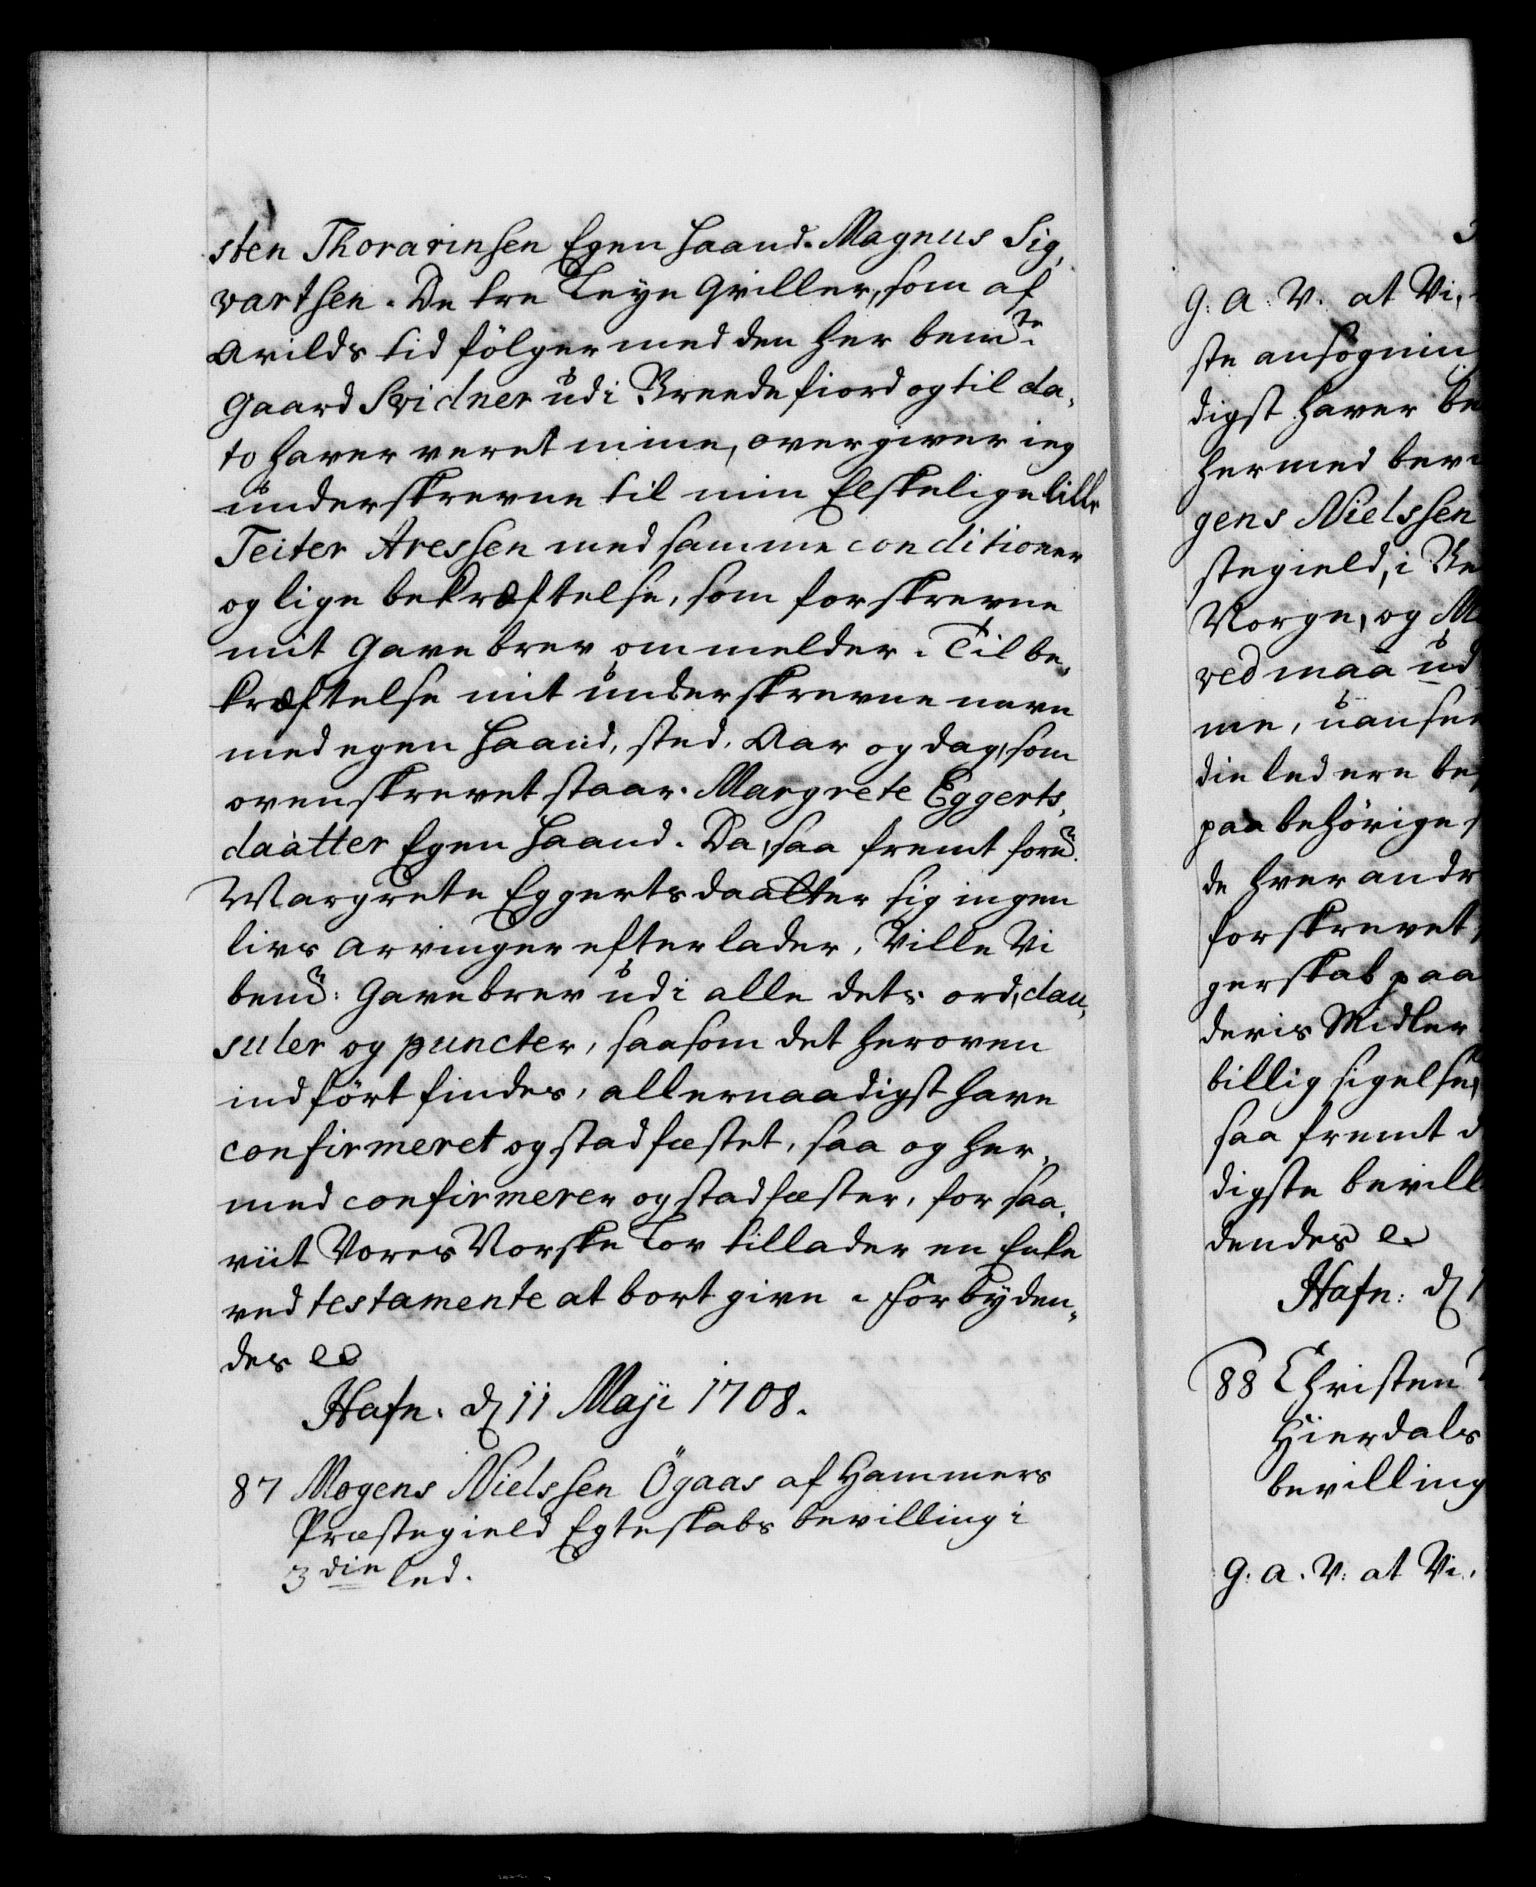 sten Thorarinsen Egen Haand. Magnus Sig,
vartsen. De tre Leye Qviller, som af
Arilds tid fölger med den her bemte
Gaard Svidner udi Breedefiord og til da,
to haver veret mine, overgiver ieg
underskrevne til min Elskelige lille
Teiter Aressen med samme conditioner
og lige bekræftelse, som forskrevne
mit Gavebrev ommelder. Til be,
kræftelse mit underskrevne navn
med egen Haand, sted, Aar og dag, som
ovenskrevet staar. Margrete Eggerts,
daatter Egen Haand. Da, saa fremt forn:
Margrete Eggertsdaatter sig ingen
livs arvinger efterlader, Ville Vi
bemt: Gavebrev udi alle dets ord, clau,
suler og puncter, saasom det heroven
indfört findes, allernaadigst have
confirmeret og stadfæstet, saa og her,
med confirmerer og stadfæster, for saa,
viit Vores Norske Lov tillader en Enke
ved testamente at bort give. Forbyden,
des e
Hafn. d 11 Maji 1708.
87 Mogens Nielssen Ögaas af Hammers
Præstegield Egteskabs bevilling i
3die led.
G. A. V. at Vi,
ste ansögnin
digst haver be
hermed bevi
gens Nielssen
stegield, i
Norge, og
ved maa ud
me, uansee
die led ere be
paa behörige
de hver andr
forskrevet
gerskab paa
deris Midler
billig sigelse,
saa fremt d
digste bevill
dendes e
Hafn: d
88 Christen
Hierdals
bevilling
G. A. V. at Vi.